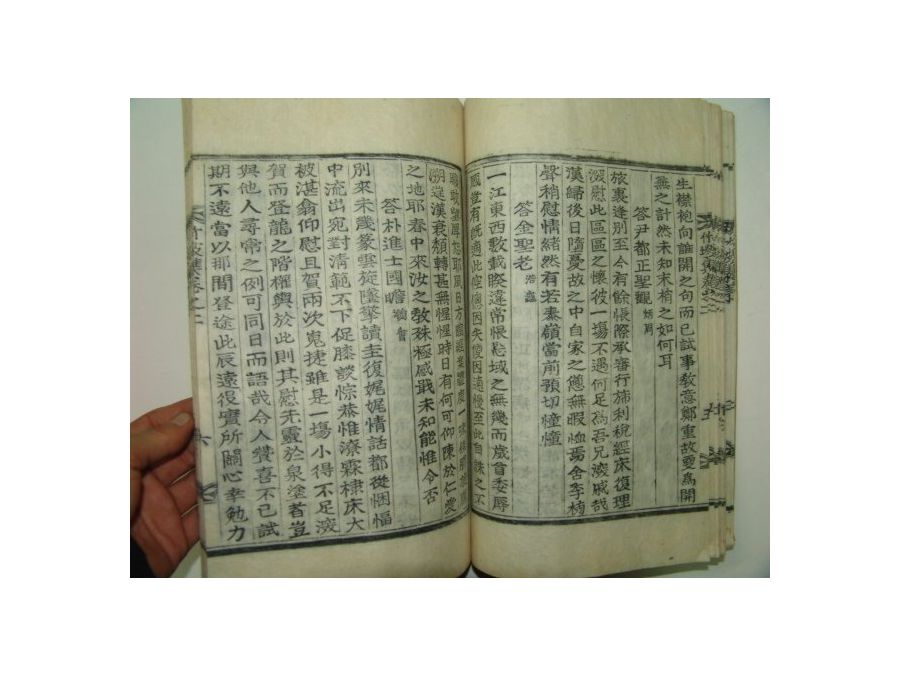 生襟袍向誰開之句而已試事敎意鄭重故爰爲開
無之計然未知末梢之如何耳
答尹都正聖觀
旅裏逢別至今有餘悵際承審行旆利稅經床復理
深慰此區區之懷彼一場不遇何足爲吾兄深戚哉
漢歸後日隨憂故之中自家之憊無暇恤焉舍李
聲稍慰情緖然有若泰嶺當前預切憧憧
答金聖老
一江東西數載睽違常悵
之無幾而歲首委辱
有旣適此
因失便因遠慢至此自
之不
風日方
漢衰頹轉甚無惺惺時日有何可仰陳於仁愛
之地耶春中來汝之敎殊極感戢未知能惟令否
答朴進士國瞻
別來未幾篆雲旋墜擎讀圭復娓娓情話都從悃愊
中流出宛對淸範不下促膝談悰恭惟潦霖棣床大
被湛翕仰慰且賀兩次嵬捷雖是一場小得不足深
賀而登龍之階權輿於此則其慰先靈於泉塗者豈
與他人尋常之例可同日而語哉令人贊喜不已試
期不遠當以那間登途此辰遠役實所關心幸勉力